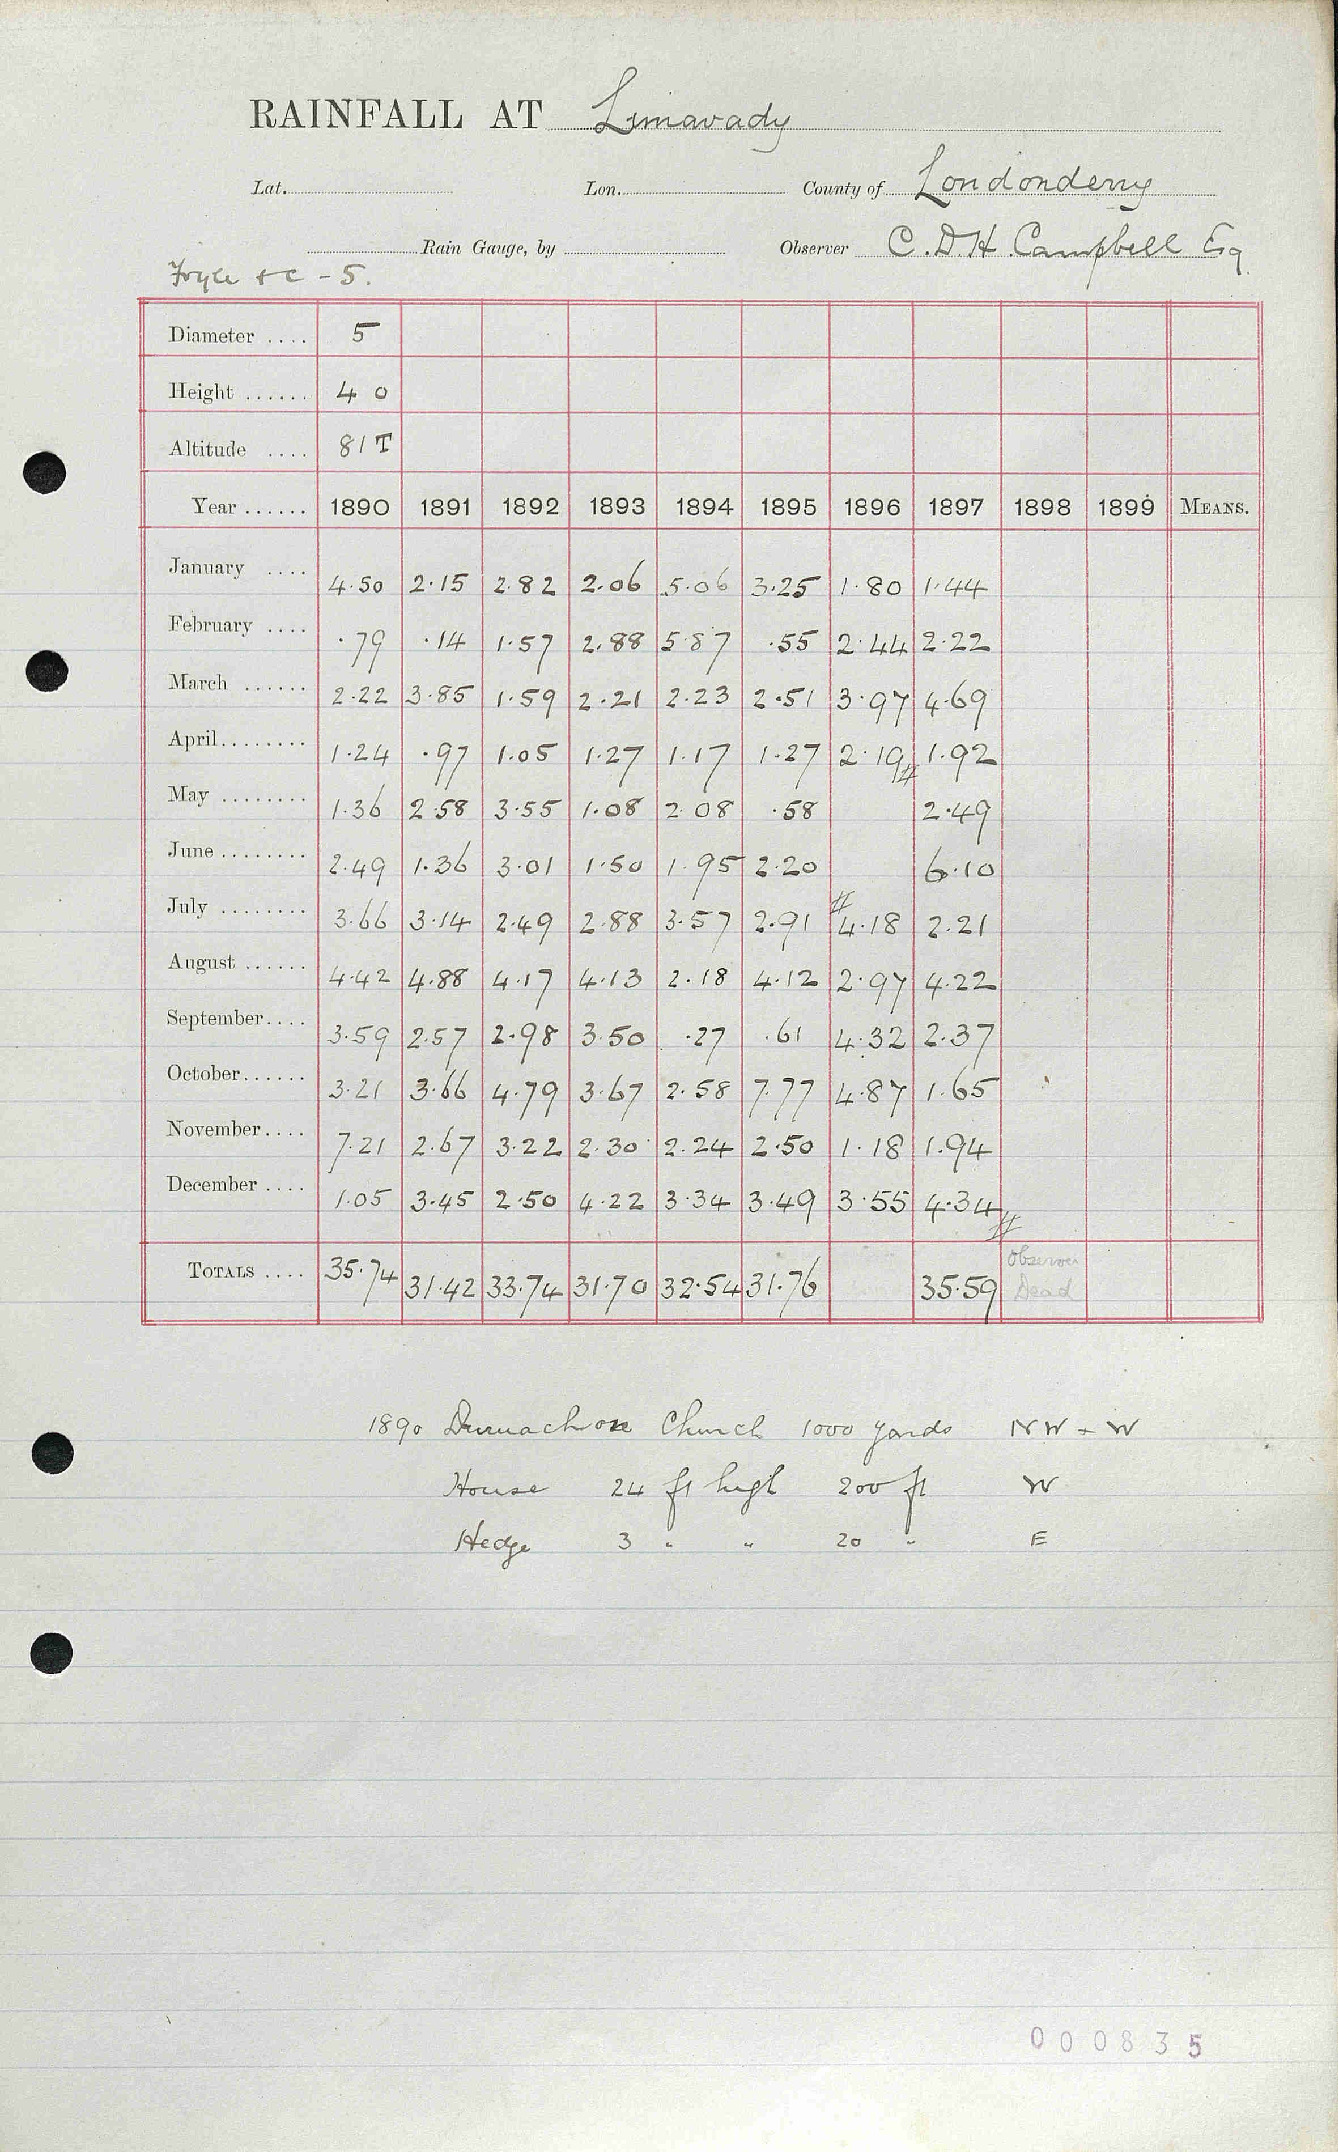 RAINFALL AT Limavady
Lat. Lon. County of Londonderry
Rain Gauge, by Observer C. D. H Campbell Esq
Foyle & c - 5.
Diameter .... 5
Height ...... 4 0
Altitude .... 81 T
Year ...... 1890 1891 1892 1893 1894 1895 1896 1897 1898 1899 MEANS.
January .... 4.50 2.15 2.82 2.06 5.06 3.25 1.80 1.44
February .... .79 .14 1.57 2.88 5.87 .55 2.44 2.22
March ...... 2.22 3.85 1.59 2.21 2.23 2.51 3.97 4.69
April........ 1.24 .97 1.05 1.27 1.17 1.27 2.19 1.92
May ........ 1.36 2.58 3.55 1.08 2.08 .58 2.49
June ........ 2.49 1.36 3.01 1.50 1.95 2.20 6.10
July ........ 3.66 3.14 2.49 2.88 3.57 2.91 4.18 2.21
August ...... 4.42 4.88 4.17 4.13 2.18 4.12 2.97 4.22
September.... 3.59 2.57 2.98 3.50 .27 .61 4.32 2.37
October...... 3.21 3.66 4.79 3.67 2.58 7.77 4.87 1.65
November.... 7.21 2.67 3.22 2.30 2.24 2.50 1.18 1.94
December .... 1.05 3.45 2.50 4.22 3.34 3.49 3.55 4.34
TOTALS .... 35.74 31.42 33.74 31.70 32.54 31.76 35.59 Observer Dead
1890 Church 1000 yards NW - W
House 24 ft high 200 ft W
Hedge 3 " " 20 " E
000835